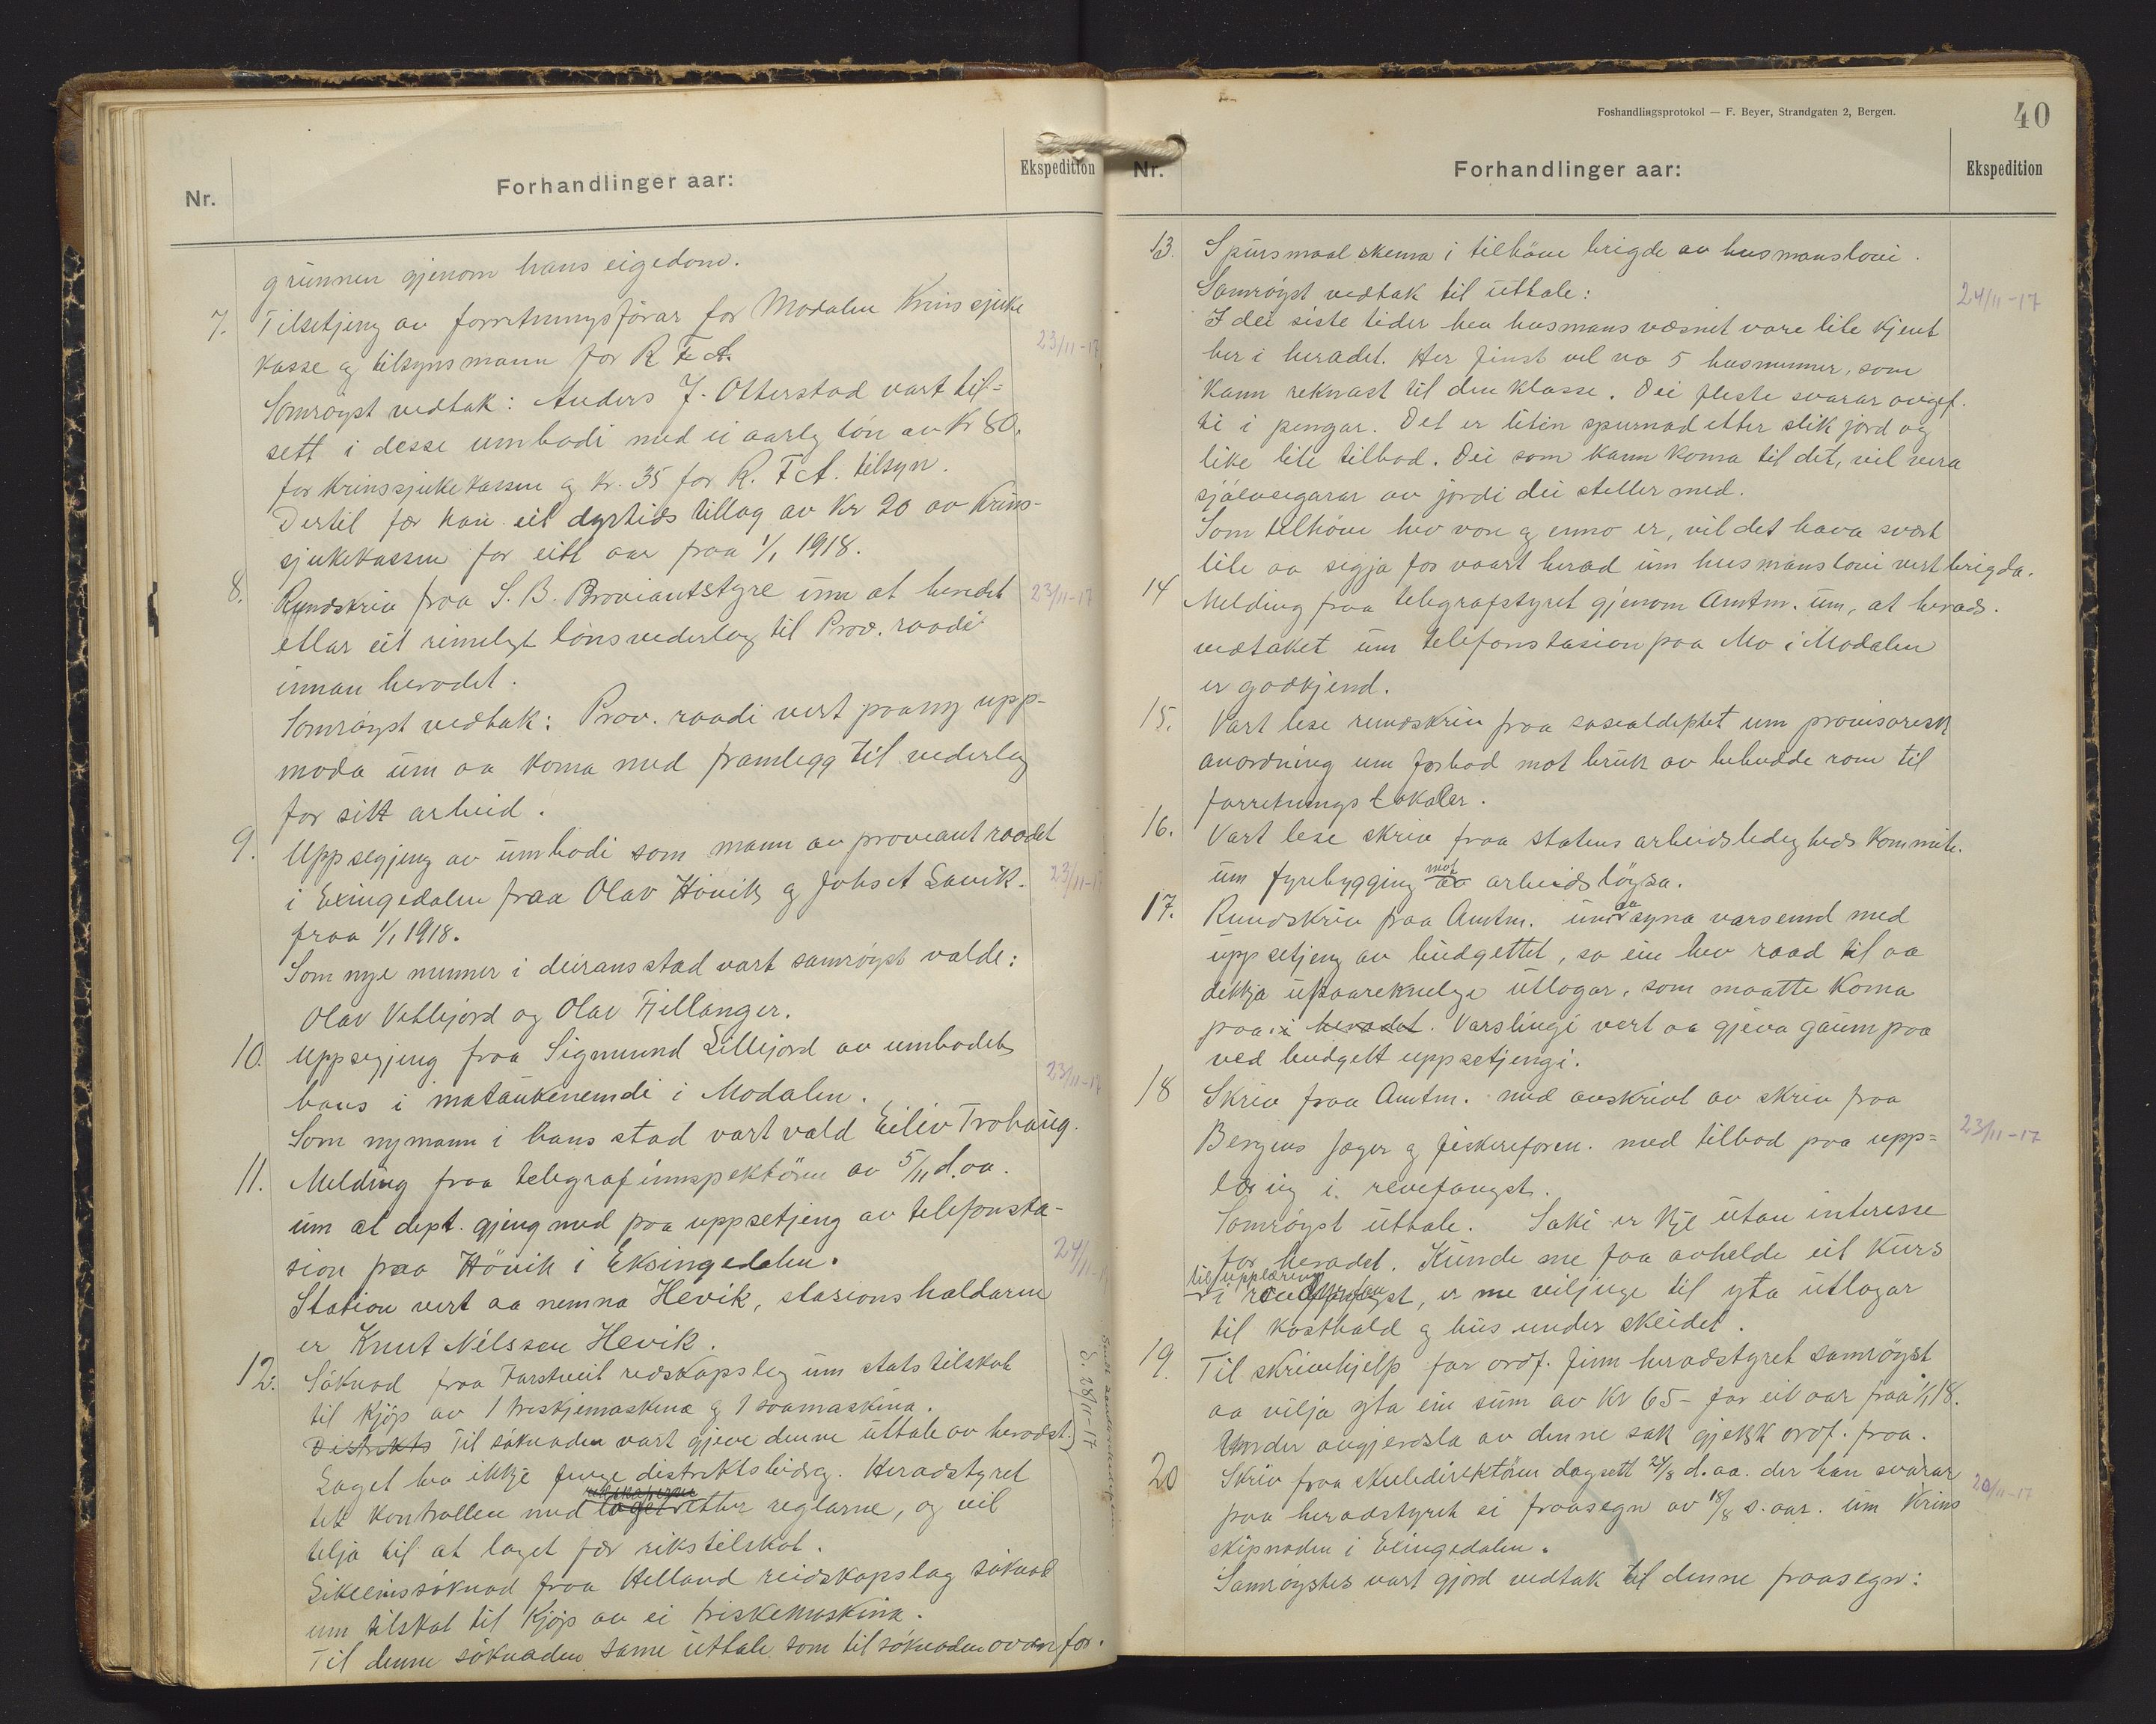 Nr.
Forhandlinger aar:
Ekspedition
grunnen gjenom hans eigedom.
7. Tilsetjing av forretningsförar for Modalen Krinssjuke
kasse og tilsynsmann for R. F. A. 23/11-17
Samröyst vedtak: Anders J. Otterstad vart til-
sett i desse umbodi med ei aarleg lön av Kr 80.
for Krinssjukekassen og kr. 35 for R. F. A. tilsyn.
Dertil fær han eit dyrtids tillag av Kr 20 av Krins-
sjukekassen for eitt aar fraa 1/1 1918.
8. Rundskriv fraa S. B. Proviantstyre um at heradet 23/11-17
etlar eit rimelegt lönsvederlag til Prov. raadi
innan heradet.
Samröyst vedtak: Prov. raadi vert paany upp-
moda um aa koma med framlegg til vederlag
for sitt arbeid.
9. Uppsegjing av umbodi som mann av proviantraadet
i Exingedalen fraa Olav Hövik og Johs A Lavik. 23/11-17
fraa 1/1 1918.
Som nye menner i deirans stad vart samröyst valde:
Olav Vetlejord og Olav Fjellanger.
10. Uppsegjing fraa Sigmund Lillejord av umbodet 23/11-17
hans i mataukenemdi i Modalen.
Som nymann i hans stad vart vald Eiliv Trohaug.
11. Melding fraa telegrafinnspektören av 5/11 d. aa.
um at dept. gjeng med paa uppsetjeng av telefonsta-
sion paa Hövik i Eksingedalen. 24/11-17
Station vert aa nemna Hevik, stasionshaldaren
er Knut Nilsson Hevik.
12. Söknad fraa Farstveit redskapslag um statstilskot
til kjöp av 1 treskjemaskina og 1 saamaskina. S. 28/11-17
Distrikts Til söknaden vart gjeve denne uttale av heradst.
Laget hev ikkje fenge distriktsbidrag. Heradstyret
tek kontrollen med laget redskaperne etter reglarne, og vil
telja til at laget fær rikstilskot.
Likeeins söknad fraa Helland reidskapslag söknad
um tilskot til kjöp av ei treskemaskina.
Til denne söknaden same uttale som til söknaden ovanfor.
Foshandlingsprotokol — F. Beyer, Strandgaten 2, Bergen.
40
Nr.
Forhandlinger aar:
Ekspedition
13. Spursmaal skema i tilhöve brigde av husmansloui.
Samröyst vedtak til uttale: 24/11-17
I dei siste tider hev husmans væsnet vore lite kjent
her i heradet. Her finst vel no 5 husmenner, som
kann reknast til den klasse. Dei fleste svarar avgif-
ti i pengar. Det er liten spurnad etter slik jord og
like lite tilbod. Dei som kann koma til det, vil vera
sjölveigarar av jordi dei steller med.
Som tilhöve hev vore og enno er, vil det hava svært
lite aa segja for vaart herad um husmansloui vert brigda.
14 Melding fraa telegrafstyret gjenom Amtm. um, at herads-
vedtaket um telefonstasion paa Mo i Modalen
er godkjend.
15. Vart lese rundskriv fraa sosialdeptet um provisorisk
anordning um forbod mot bruk av bebudde rom til
forretnings lokaler.
16. Vart lese skriv fraa statens arbeidsledigheds kommite.
um fyrebygging av mot arbeidslöysa.
17. Rundskriv fraa Amtm. um aa syna varsemd med
uppsetjeng av budgettet, so ein hev raad til aa
dekkja upaareknelege utlogar, som maatte koma
paa i heradet. Varslingi vert aa gjeva gaum paa
ved budgett uppsetjengi.
18 Skriv fraa Amtm. med avskrivt av skriv fraa
Bergens Jæger og fiskereforen. med tilbod paa upp- 23/11-17
læring i revefangst.
Samröyst uttale. Saki er kje utan interesse
for heradet. Kunde me faa avhelde eit kurs
til upplæring
i revefangst, er me viljuge til yta utlogar
til kosthald og hus under skeidet.
19. Til skrivehjelp for ordf. finn heradstyret samröyst
aa vilja yta ein sum av Kr 65- for eit aar fraa 1/1 18.
Under avgjerdsla av denne sak gjekk ordf. fraa.
20 Skriv fraa skuledirektören dagsett 24/8 d. aa. der han svarar 20/11-17
paa heradstyret si fraasegn av 18/8 s. aar. um Krins
skipnaden i Exingedalen.
Samröystes vart gjord vedtak til denne fraasegn: